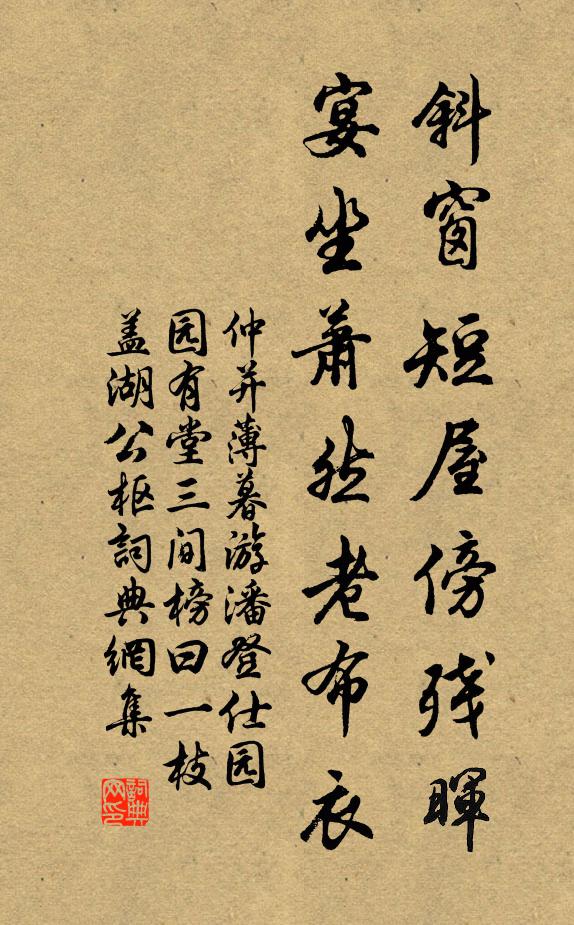 斜窗短屋傍残暉
宴坐蕭然老布衣
仲并薄暮游潘登仕园
园有堂三间榜曰一枝
盖湖公枢詞典網集
詞典网印